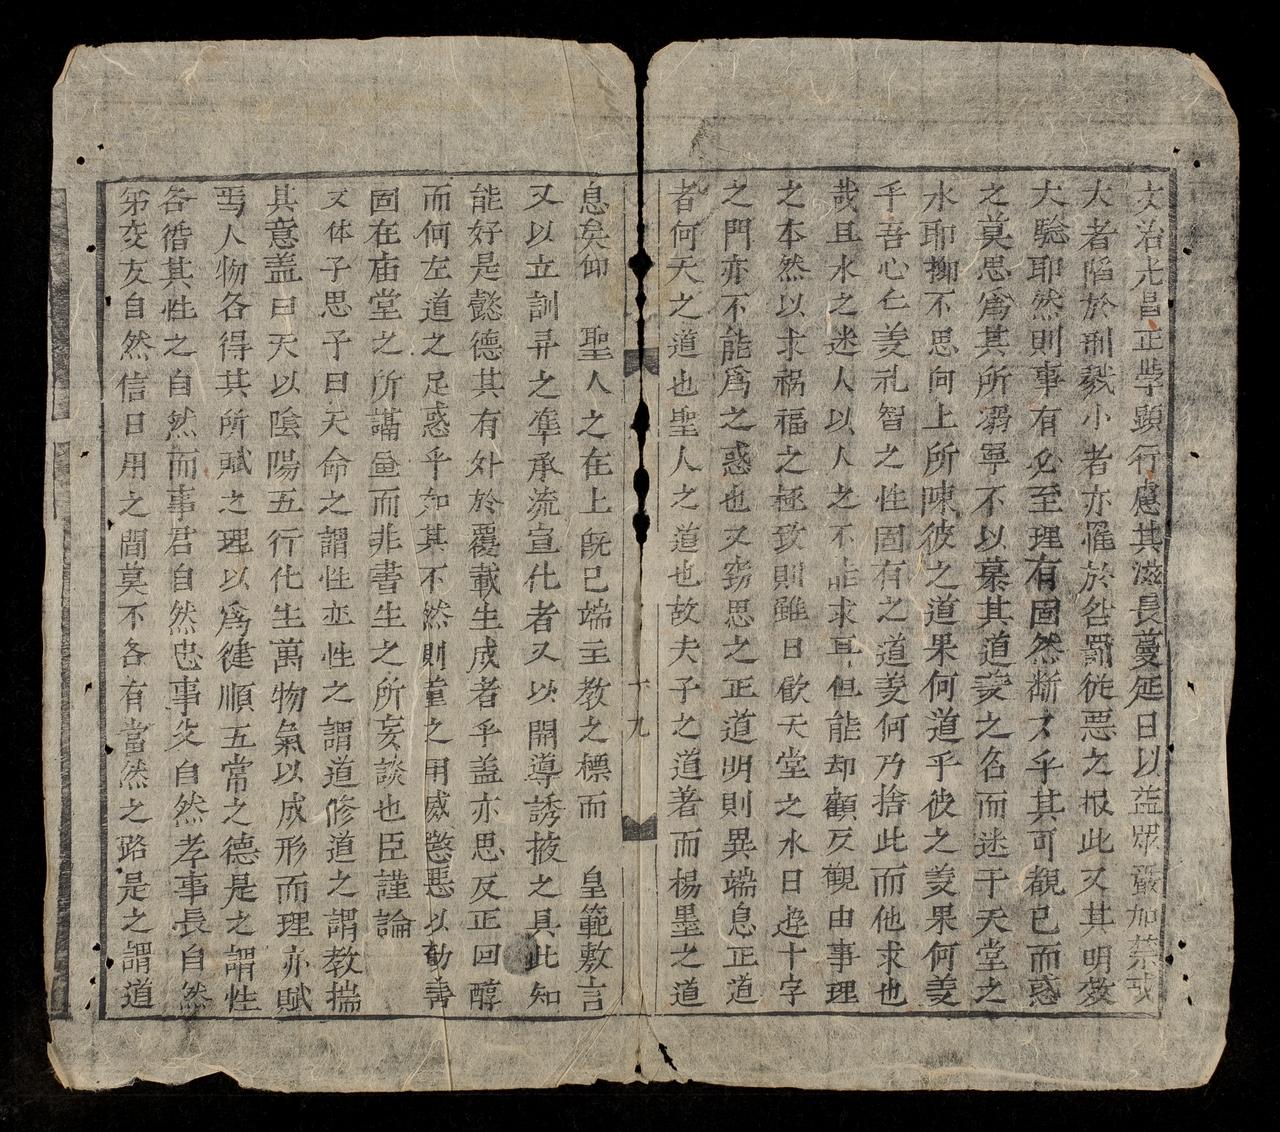 文治光昌正學顕行慮其滋長蔓延日以益眾嚴加禁戒
大者陷於刑戮小者亦罹於咎罰從悪之報此又其明效
大驗耶然則事有必至理有固然漸久乎其可覩已而惑
之莫思為其所溺寧不以慕其道義之名而迷于天堂之
水耶抑不思向上所陳彼之道果何道乎彼之義果何義
乎吾心仁義礼智之性固有之道義何乃捨此而他求也
哉且水之迷人以人之不能求耳但能却顧反觀由事理
之本然以求禍福之極致則雖日飲天堂之水日遊十字
之門亦不能為之惑也又竊思之正道明則異端息正道
者何天之道也聖人之道也故夫子之道著而楊墨之道
十九
息矣仰 聖人之在上既已端主教之標而 皇範敷言
又以立訓㝷之準承流宣化者又以開導誘掖之具此知
能好是懿德其有外於覆載生成者乎盖亦思反正回醇
而何左道之足惑乎如其不然則董之用威懲悪以勸善
固在庙堂之所講画而非書生之所妄談也臣謹論
又体子思子曰天命之謂性率性之謂道修道之謂教揣
其意盖曰天以陰陽五行化生萬物氣以成形而理亦賦
焉人物各得其所賦之理以為健順五常之德是之謂性
各循其性之自然而事君自然忠事父自然孝事長自然
弟交友自然信日用之間莫不各有當然之路是之謂道